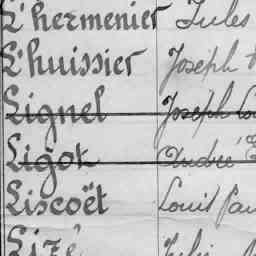 L'hermenier Jules
L'huissier Joseph
Lignel Joseph
Ligot André
Liscoët Louis
Lizé